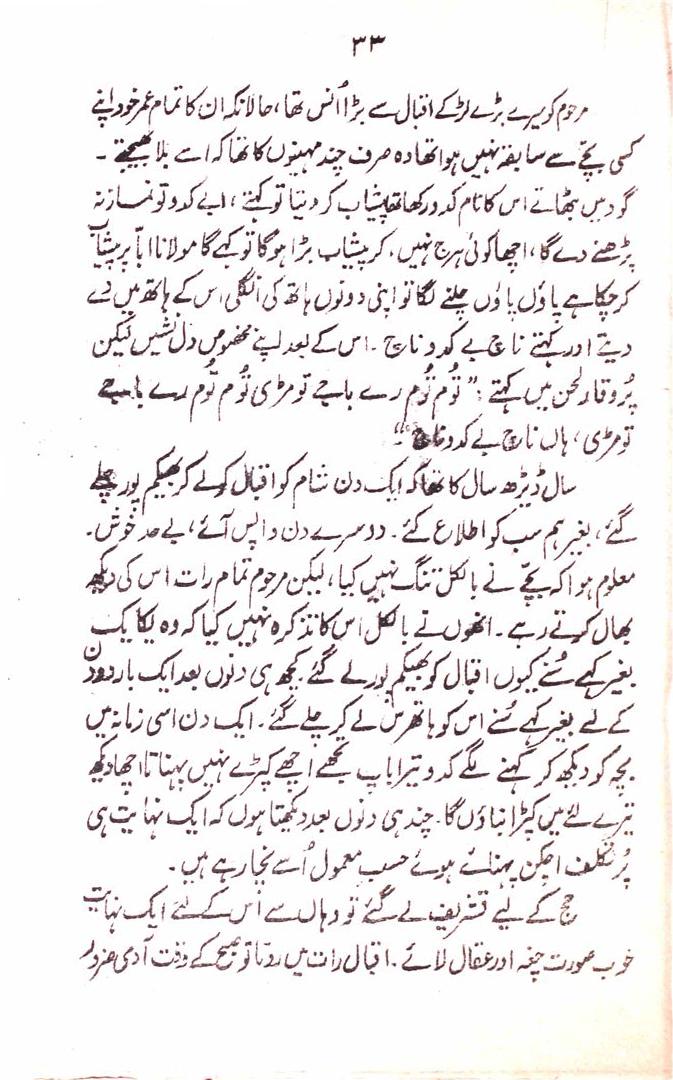 ۳۳
مرحوم کو میرے بڑے لڑکے اقبال سے بڑا اُنس تھا، حالانکہ ان کا تمام عمر خود اپنے
کسی بچّے سے سابقہ نہیں ہوا تھا وہ صرف چند مہینوں کا تھا کہ اسے بلا بھیجتے ۔
گود میں بٹھاتے اس کا نام کدو رکھا تھا پیشاب کر دیتا تو کہتے، ابے کدو تو نماز نہ
پڑھنے دے گا، اچھا کوئی ہرج نہیں، کر پیشاب بڑا ہوگا تو کہے گا مولانا ابا پر پیشاب
کر چکا ہے پاؤں پاؤں چلنے لگا تو اپنی دونوں ہاتھ کی انگلی اس کے ہاتھ میں دے
دیتے اور کہتے ناچ بے کدو ناچ ۔ اس کے بعد اپنے مخصوص دل نشیں لیکن
پُر وقار لحن میں کہتے : " تُوم تُوم رے باجے تو مڑی تُوم تُوم رے باجے
تو مڑی، ہاں ناچ بے کدو ناچ "۔
سال ڈیڑھ سال کا تھا کہ ایک دن شام کو اقبال کو لے کر بھیکم پور چلے
گئے، بغیر ہم سب کو اطلاع کئے ۔ دوسرے دن واپس آئے، بے حد خوش ۔
معلوم ہوا کہ بچّے نے بالکل تنگ نہیں کیا، لیکن مرحوم تمام رات اس کی دیکھ
بھال کرتے رہے ۔ انھوں نے بالکل اس کا تذکرہ نہیں کیا کہ وہ یکا یک
بغیر کہے سُنے کیوں اقبال کو بھیکم پور لے گئے کچھ ہی دنوں بعد ایک بار دو دن
کے لیے بغیر کہے سُنے اس کو ہاتھرس لے کر چلے گئے ۔ ایک دن اسی زمانہ میں
بچہ کو دیکھ کر کہنے لگے کدو تیرا باپ تجھے اچھے کپڑے نہیں پہناتا اچھا دیکھ
تیرے لئے میں کپڑا بناؤں گا ۔ چند ہی دنوں بعد دیکھتا ہوں کہ ایک نہایت ہی
پُر تکلف اچکن پہنائے ہوئے حسب معمول اُسے نچا رہے ہیں ۔
حج کے لیے تشریف لے گئے تو وہاں سے اس کے لئے ایک نہایت
خوب صورت چغہ اور عقال لائے ۔ اقبال رات میں روتا تو صبح کے وقت آدمی ضرور